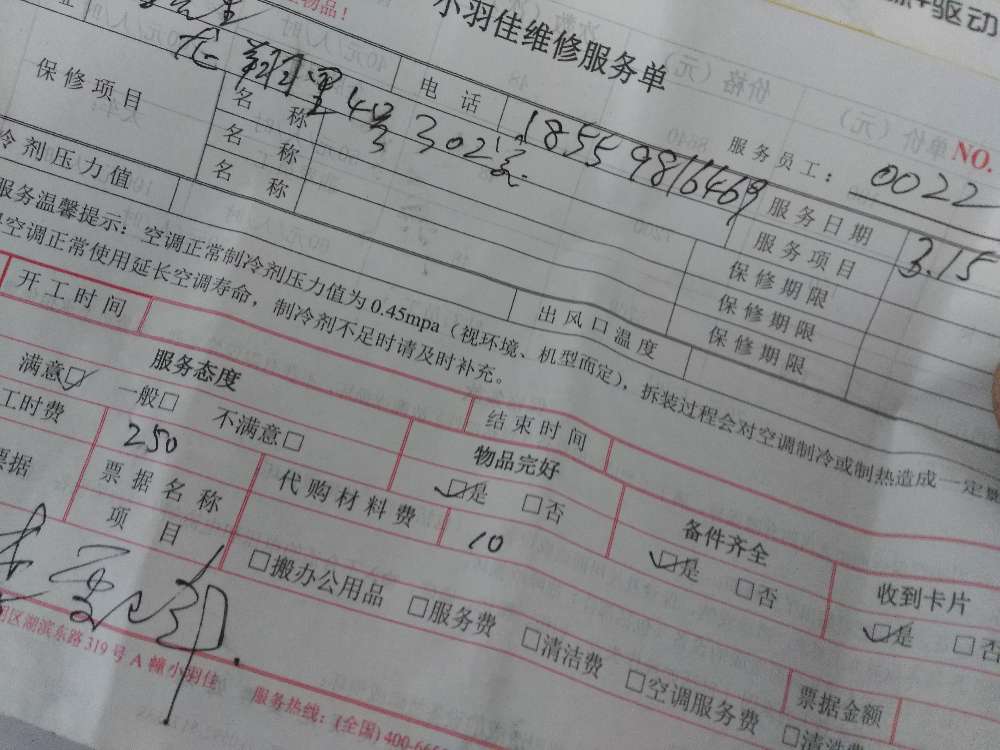 物品！
小羽佳维修服务单
驱动
NO.
服务员工：0022
电话 18559816469
服务日期 3.15
4号302室
保修项目
名称
服务项目
名称
保修期限
名称
保修期限
冷剂压力值
出风口温度
保修期限
服务温馨提示：空调正常制冷剂压力值为0.45mpa（视环境、机型而定），拆装过程会对空调制冷或制热造成一定
空调正常使用延长空调寿命，制冷剂不足时请及时补充。
开工时间
结束时间
服务态度
物品完好
备件齐全
收到卡片
满意□ 一般□ 不满意□
□是 □否
□是 □否
□是 □否
工时费 250
代购材料费 10
票据
票据名称
项目
□搬办公用品 □服务费 □清洁费 □空调服务费 □清洗费
票据金额
区湖滨东路319号A幢小羽佳
服务热线：(全国)400-666